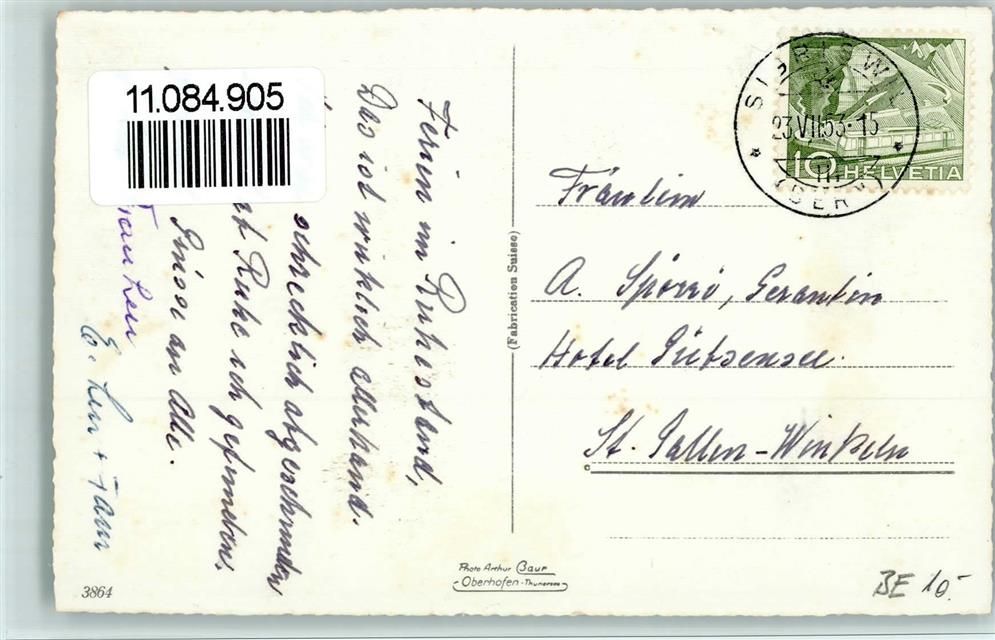 11.084.905
Ferien im Ruhestand,
Das ist wirklich allerhand.
schrecklich abgeschunden
Ruhe ich gefunden.
Grüsse an Alle.
E. Leu + Frau
Frau Leu
(Fabrication Suisse)
SIGRISWIL
23.VII.53-15
(BERN)
10 HELVETIA
Fräulein
A. Spörri, Gerantin
Hotel Gübsensee.
St. Gallen-Winkeln
Photo Arthur Baur
Oberhofen-Thunersee
3864
BE 10.-